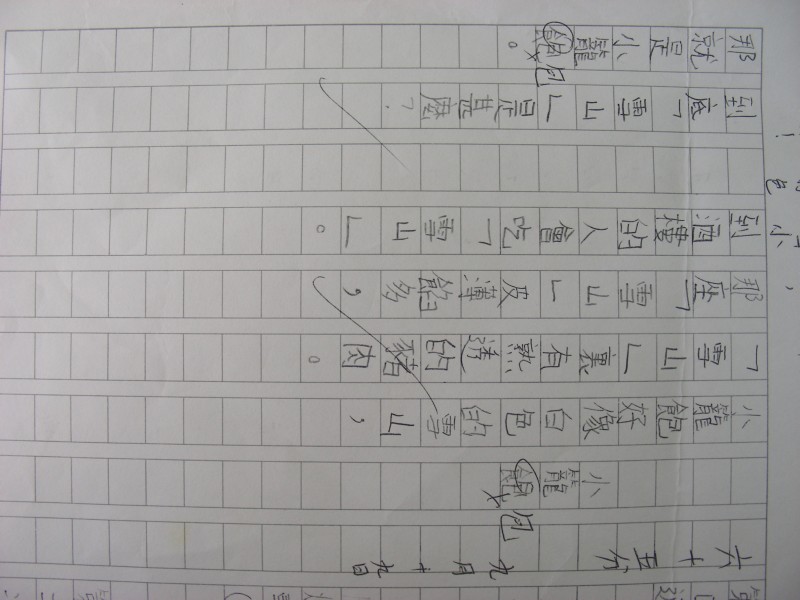 六十五分 九月十九日
小籠飽
包
小籠飽好像白色的雪山，
「雪山」裏有熟透的豬肉。
那座「雪山」皮薄餡多，
到酒樓的人會吃「雪山」。
到底「雪山」是甚麼？
那就是小籠飽。
包